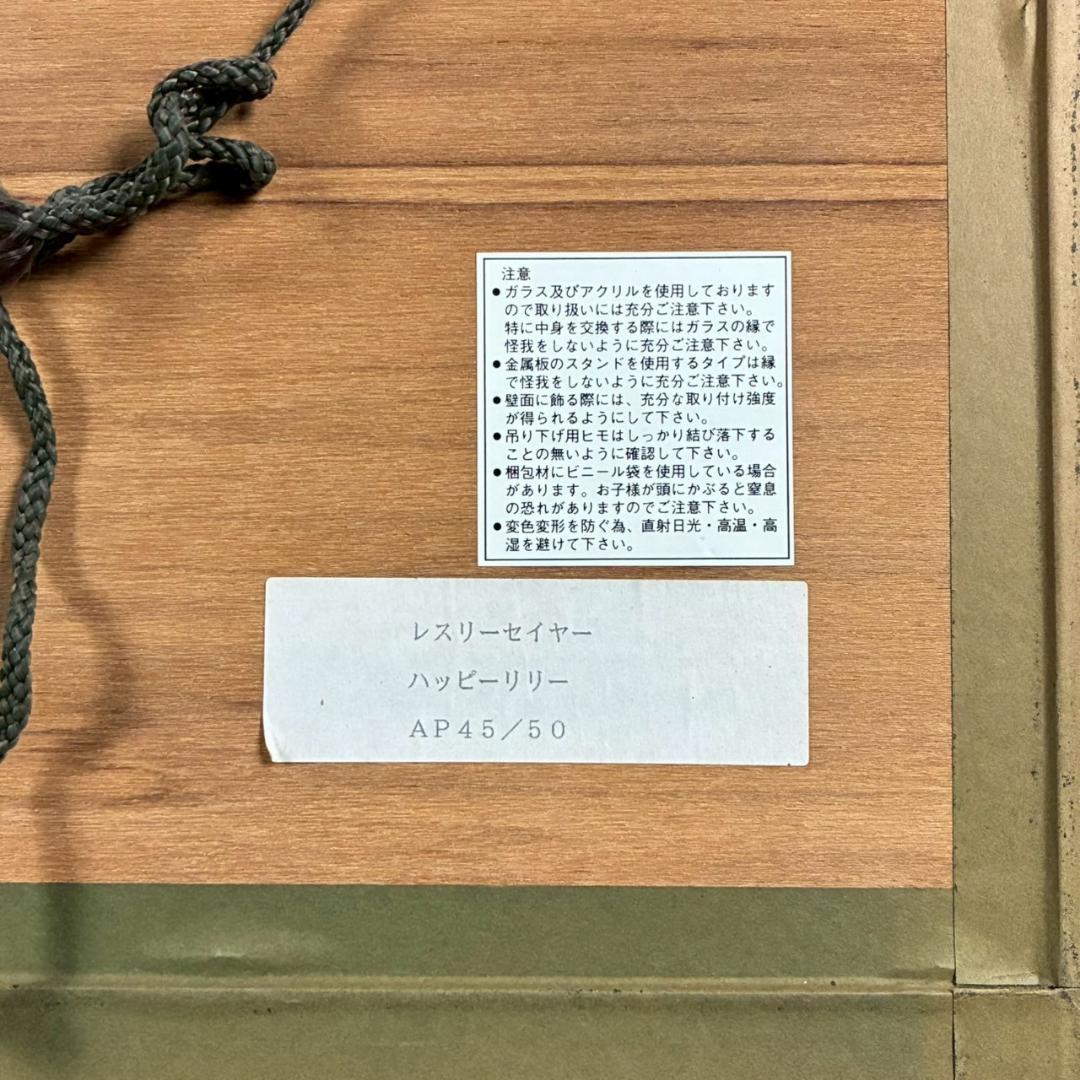 注意
●ガラス及びアクリルを使用しております
ので取り扱いには充分ご注意下さい。
特に中身を交換する際にはガラスの縁で
怪我をしないように充分ご注意下さい。
●金属板のスタンドを使用するタイプは縁
で怪我をしないように充分ご注意下さい。
●壁面に飾る際には、充分な取り付け強度
が得られるようにして下さい。
●吊り下げ用ヒモはしっかり結び落下する
ことの無いように確認して下さい。
●梱包材にビニール袋を使用している場合
があります。お子様が頭にかぶると窒息
の恐れがありますのでご注意下さい。
●変色変形を防ぐ為、直射日光・高温・高
湿を避けて下さい。
レスリーセイヤー
ハッピーリリー
AP45／50